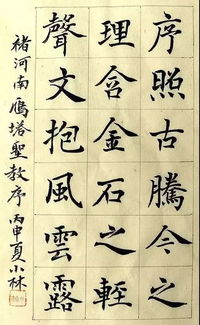 序照古騰今之
理含金石之輕
聲文抱風雲露
褚河南雁塔聖教序 丙申夏小林